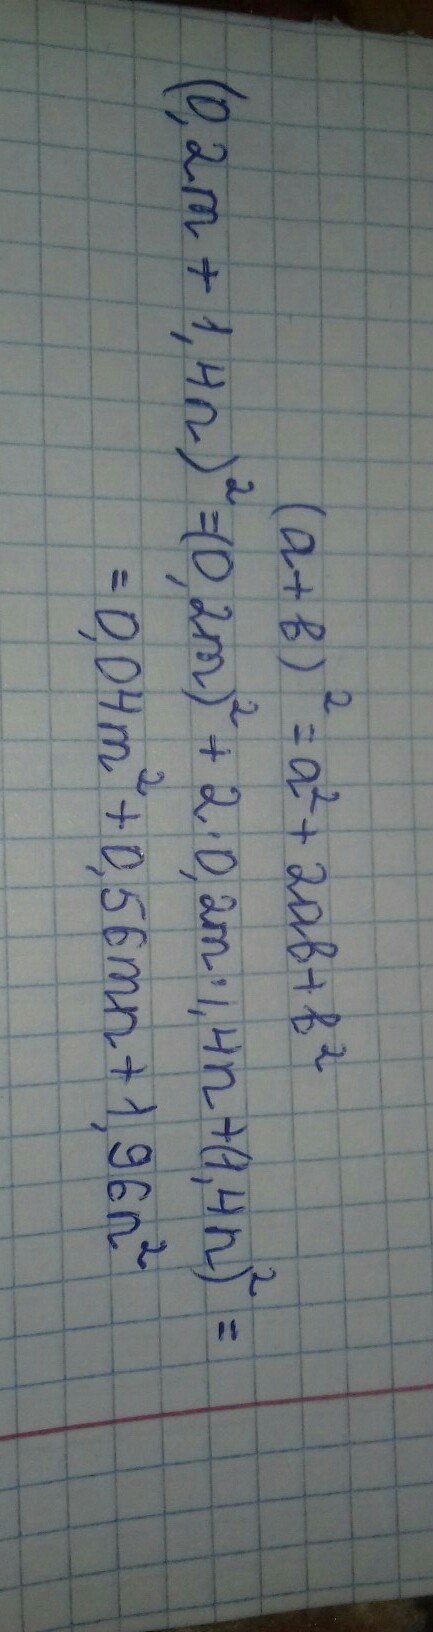 (a+b)² = a² + 2ab + b²
(0,2m + 1,4n)² = (0,2m)² + 2·0,2m·1,4n + (1,4n)² =
= 0,04m² + 0,56mn + 1,96n²